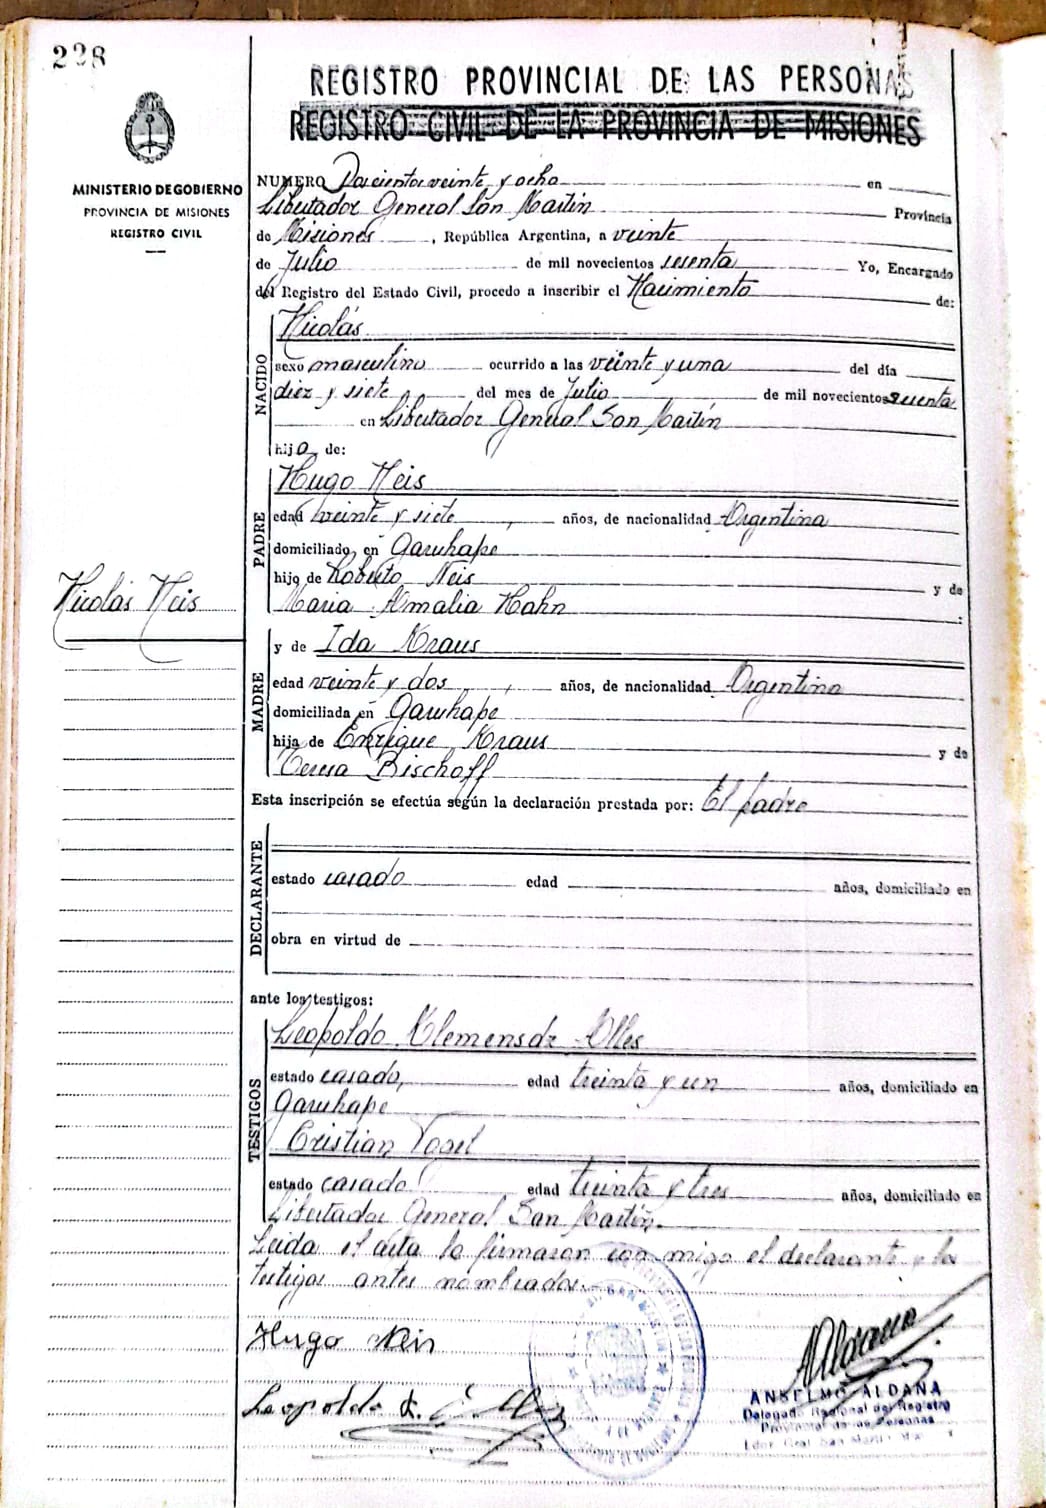 228
REGISTRO PROVINCIAL DE LAS PERSONAS
REGISTRO CIVIL DE LA PROVINCIA DE MISIONES
MINISTERIO DE GOBIERNO
PROVINCIA DE MISIONES
REGISTRO CIVIL
NUMERO Doscientos veinte y ocho en
Libertador General San Martín Provincia
de Misiones, República Argentina, a veinte
de Julio de mil novecientos sesenta Yo, Encargado
del Registro del Estado Civil, procedo a inscribir el Nacimiento de:
NACIDO
Nicolás
sexo masculino ocurrido a las veinte y una del día
diez y siete del mes de Julio de mil novecientos sesenta
en Libertador General San Martín
hijo de:
PADRE
Hugo Neis
edad veinte y siete, años, de nacionalidad Argentina
domiciliado en Garuhape
hijo de Roberto Neis y de
Maria Amalia Hahn :
Nicolás Neis
MADRE
y de Ida Kraus
edad veinte y dos, años, de nacionalidad Argentina
domiciliada en Garuhape
hija de Enrique Kraus y de
Teresa Bischoff
Esta inscripción se efectúa según la declaración prestada por: El padre
DECLARANTE
estado casado edad años, domiciliado en
obra en virtud de
ante los testigos:
TESTIGOS
Leopoldo Klemensdr Olles
estado casado, edad treinta y un años, domiciliado en
Garuhape
Cristian Vogel
estado casado edad treinta y tres años, domiciliado en
Libertador General San Martín.
Leida el acta la firmaron con migo el declarante y los
testigos antes nombrados.-
Hugo Neis
Leopoldo K.
ANSELMO ALDANA
Delegado Regional del Registro
Provincial de las Personas
Ldor. Gral. San Martín